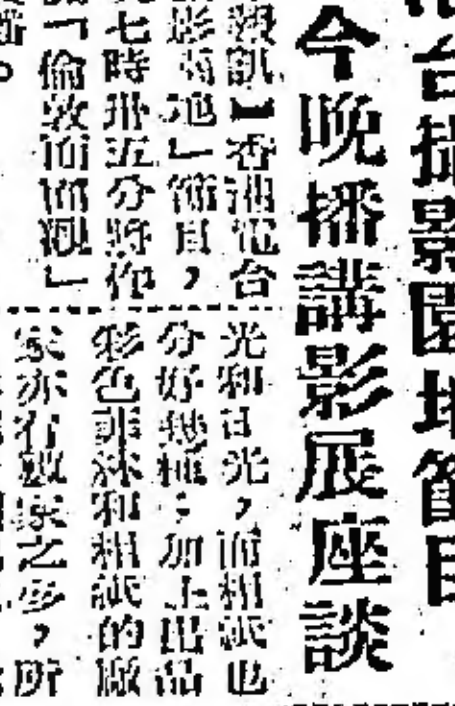 台攝影園地節目
今晚播講影展座談
報訊】香港電台
影園地」節目，
七時卅五分將作
「倫敦面面觀」
播。
光和日光，而相紙也
分好幾種；加上出品
彩色菲林和相紙的廠
家亦有數家之多，所